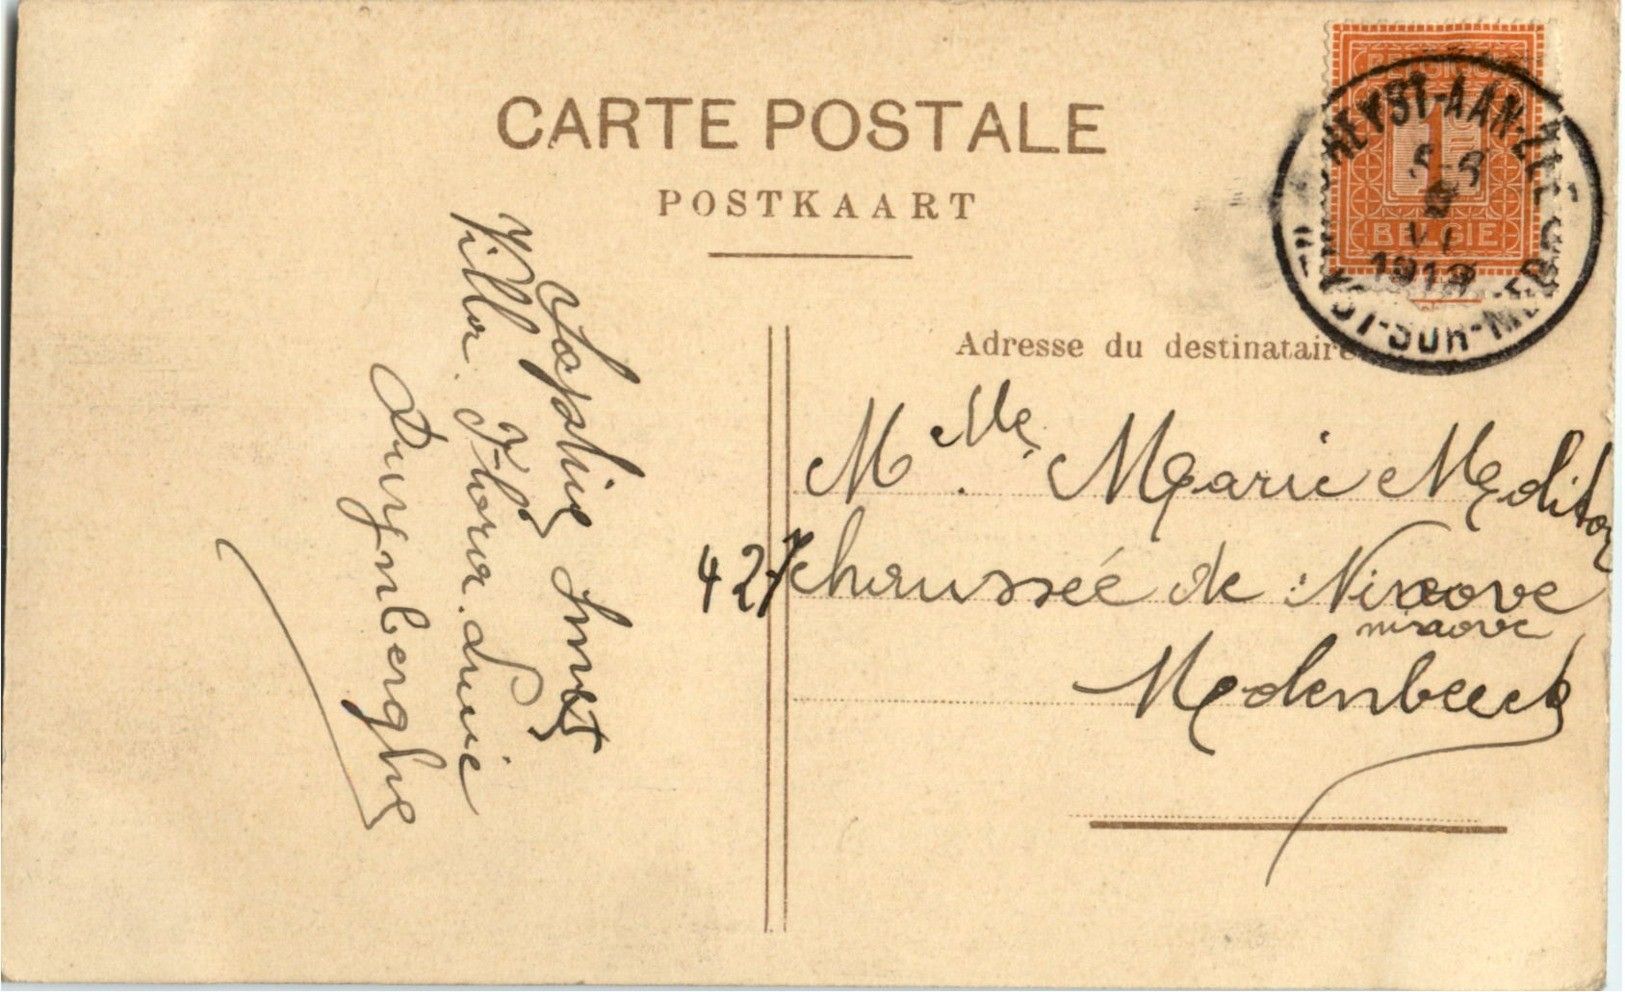 CARTE POSTALE
POSTKAART
BELGIE
1
HEYST-AAN-ZEE
VI
HEYST-SUR-MER
Adresse du destinataire
Sophie Smets
Villa Flora. Lucie
Duynberghe
Mlle. Marie Meditor
427 chaussée de Ninove
ninove
Molenbeeck